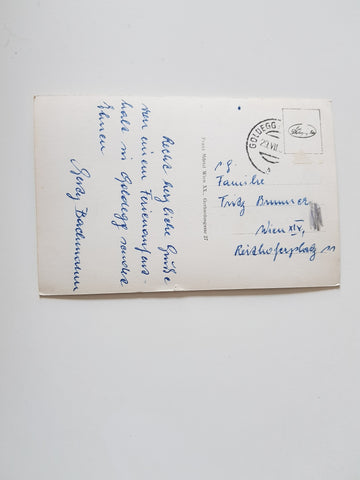 Recht herzliche Grüße
von einem Ferienaufent-
halt in Goldegg sendet
Ihnen
Gerty Bachmann
Franz Mörtl Wien XX., Gerhardusgasse 27
GOLDEGG
21.VII.
Familie
Fritz Brunner
Wien XIV,
Reithoferplatz 11